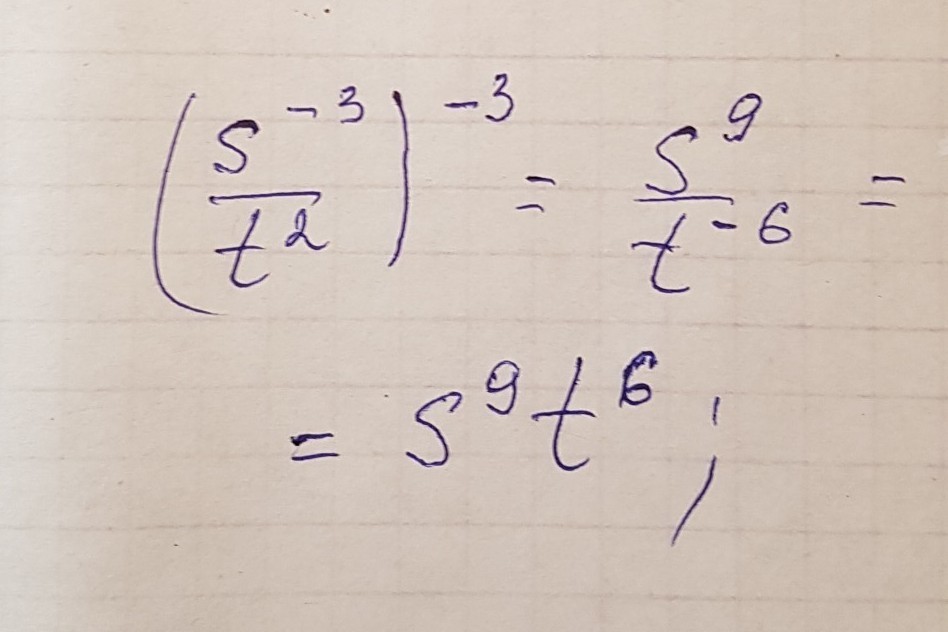 (s⁻³/t²)⁻³ = s⁹/t⁻⁶ =
= s⁹t⁶;